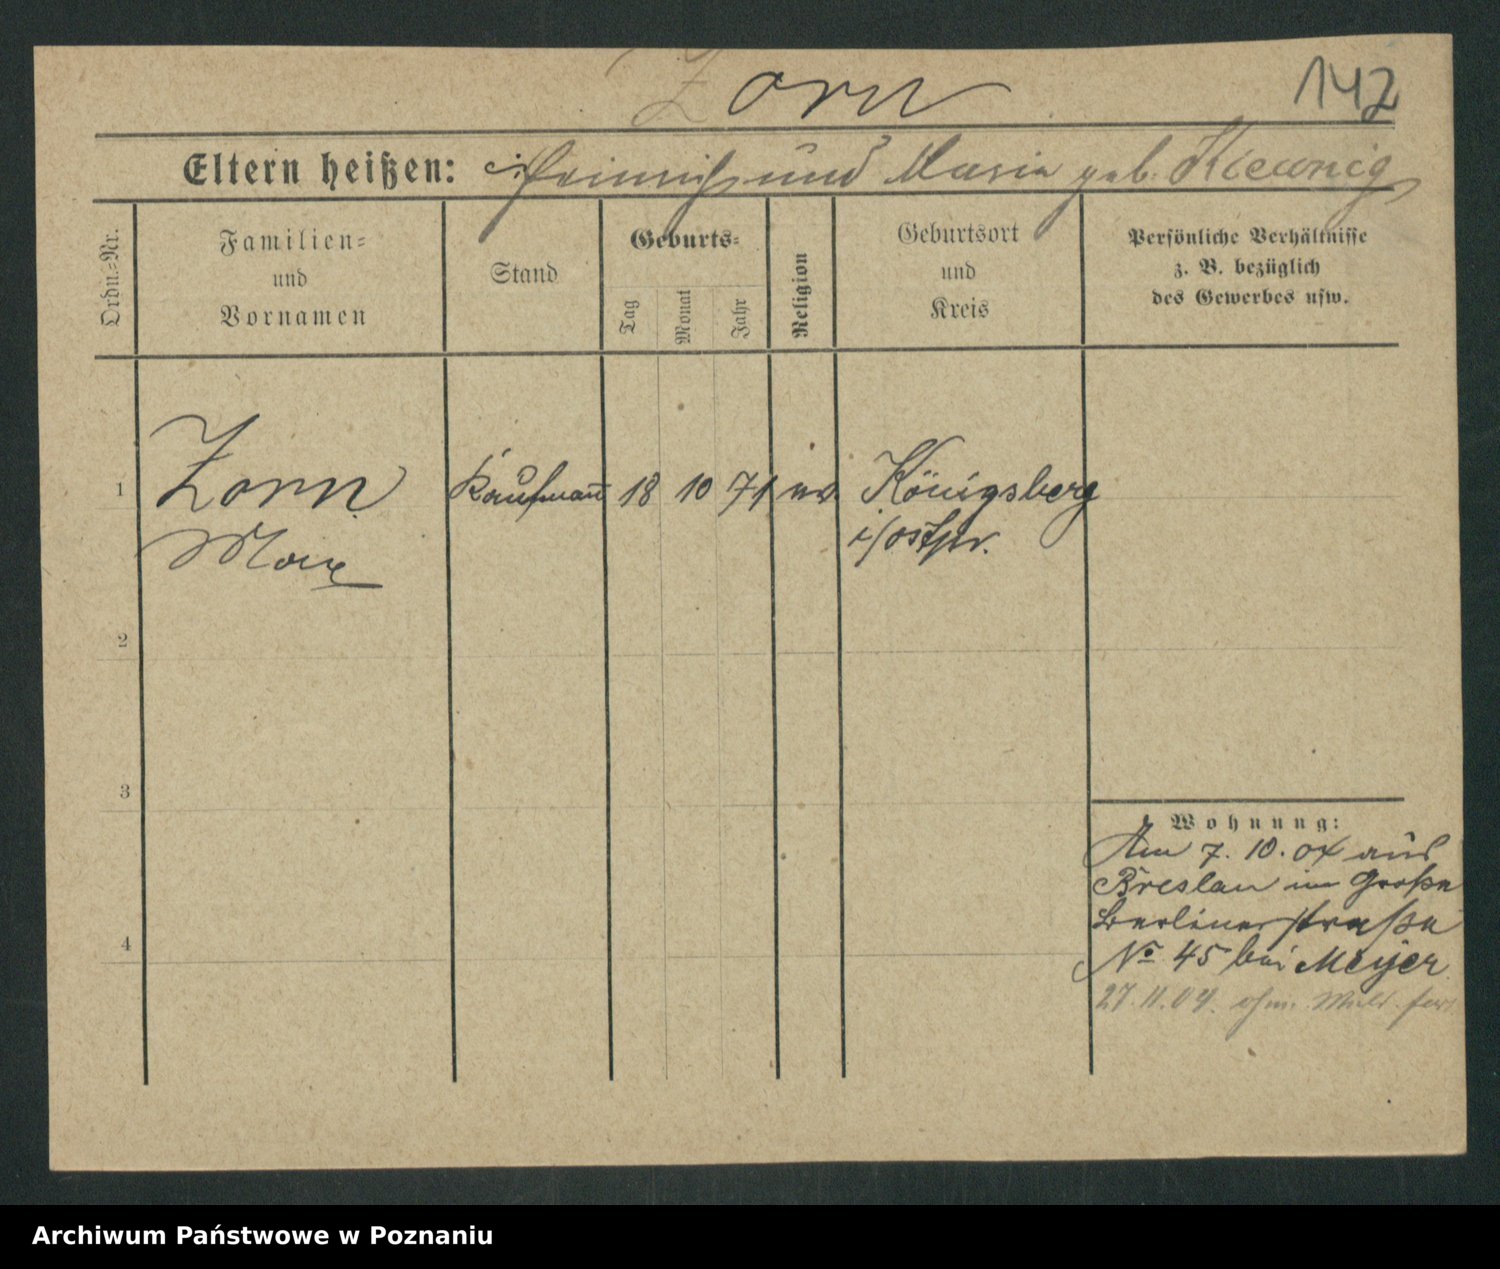 Zorn
142
Eltern heißen: Heinrich und Maria geb. Kleunig
Ordn.-Nr.
Familien-
und
Vornamen
Stand
Geburts-
Tag
Monat
Jahr
Religion
Geburtsort
und
Kreis
Persönliche Verhältnisse
z. B. bezüglich
des Gewerbes usw.
1
Zorn
Max
Kaufmann
18
10
71
Königsberg
i/Ostpr.
2
3
4
Wohnung:
Am 7. 10. 04 aus
Breslau in Große
Berlinerstraße
No 45 bei Meyer
27. 11. 04.
Archiwum Państwowe w Poznaniu